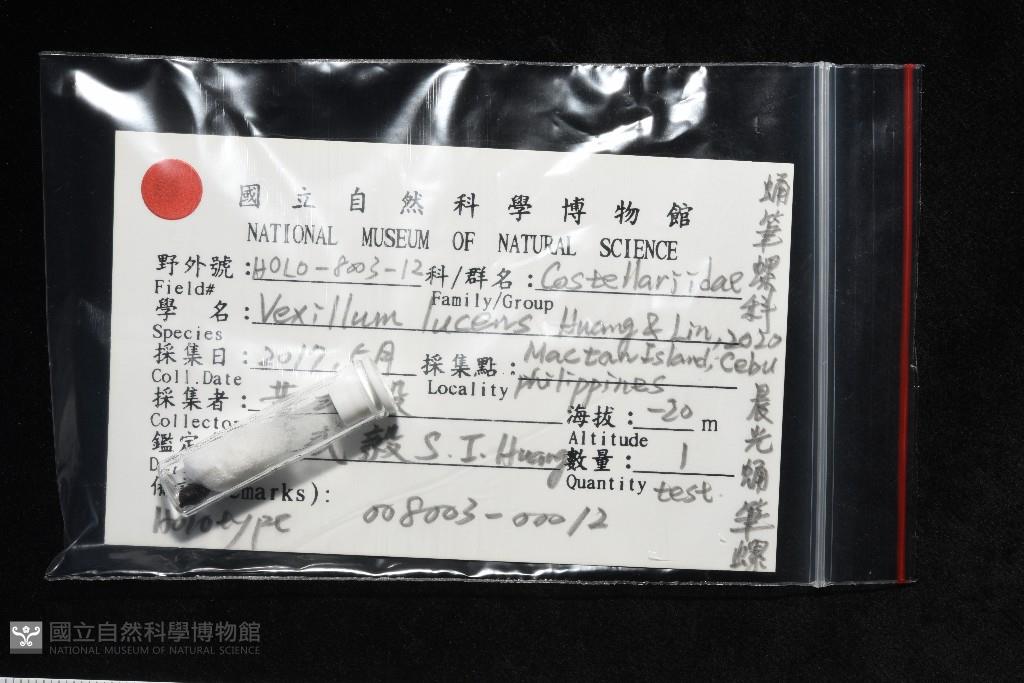 國立自然科學博物館
NATIONAL MUSEUM OF NATURAL SCIENCE
野外號：HOLO-8003-12 科/群名：Costellariidae
Field# Family/Group
學 名：Vexillum lucens Huang & Lin, 2020
Species
採集日：2017, 5月 採集點：Mactan Island, Cebu
Coll.Date Locality philippines
採集者：
海拔：-20 m
Collector Altitude
鑑定 毅 S. I. Huang 數量：1
Quantity test
(Remarks):
Holotype 008003-00012
蛹筆螺科
晨光蛹筆螺
國立自然科學博物館
NATIONAL MUSEUM OF NATURAL SCIENCE